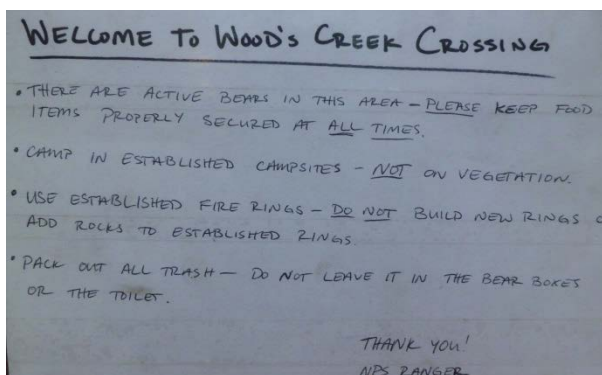 WELCOME TO WOOD'S CREEK CROSSING
• THERE ARE ACTIVE BEARS IN THIS AREA — PLEASE KEEP FOOD
ITEMS PROPERLY SECURED AT ALL TIMES.
• CAMP IN ESTABLISHED CAMPSITES — NOT ON VEGETATION.
• USE ESTABLISHED FIRE RINGS — DO NOT BUILD NEW RINGS
ADD ROCKS TO ESTABLISHED RINGS.
• PACK OUT ALL TRASH — DO NOT LEAVE IT IN THE BEAR BOXES
OR THE TOILET.
THANK YOU!
NPS RANGER